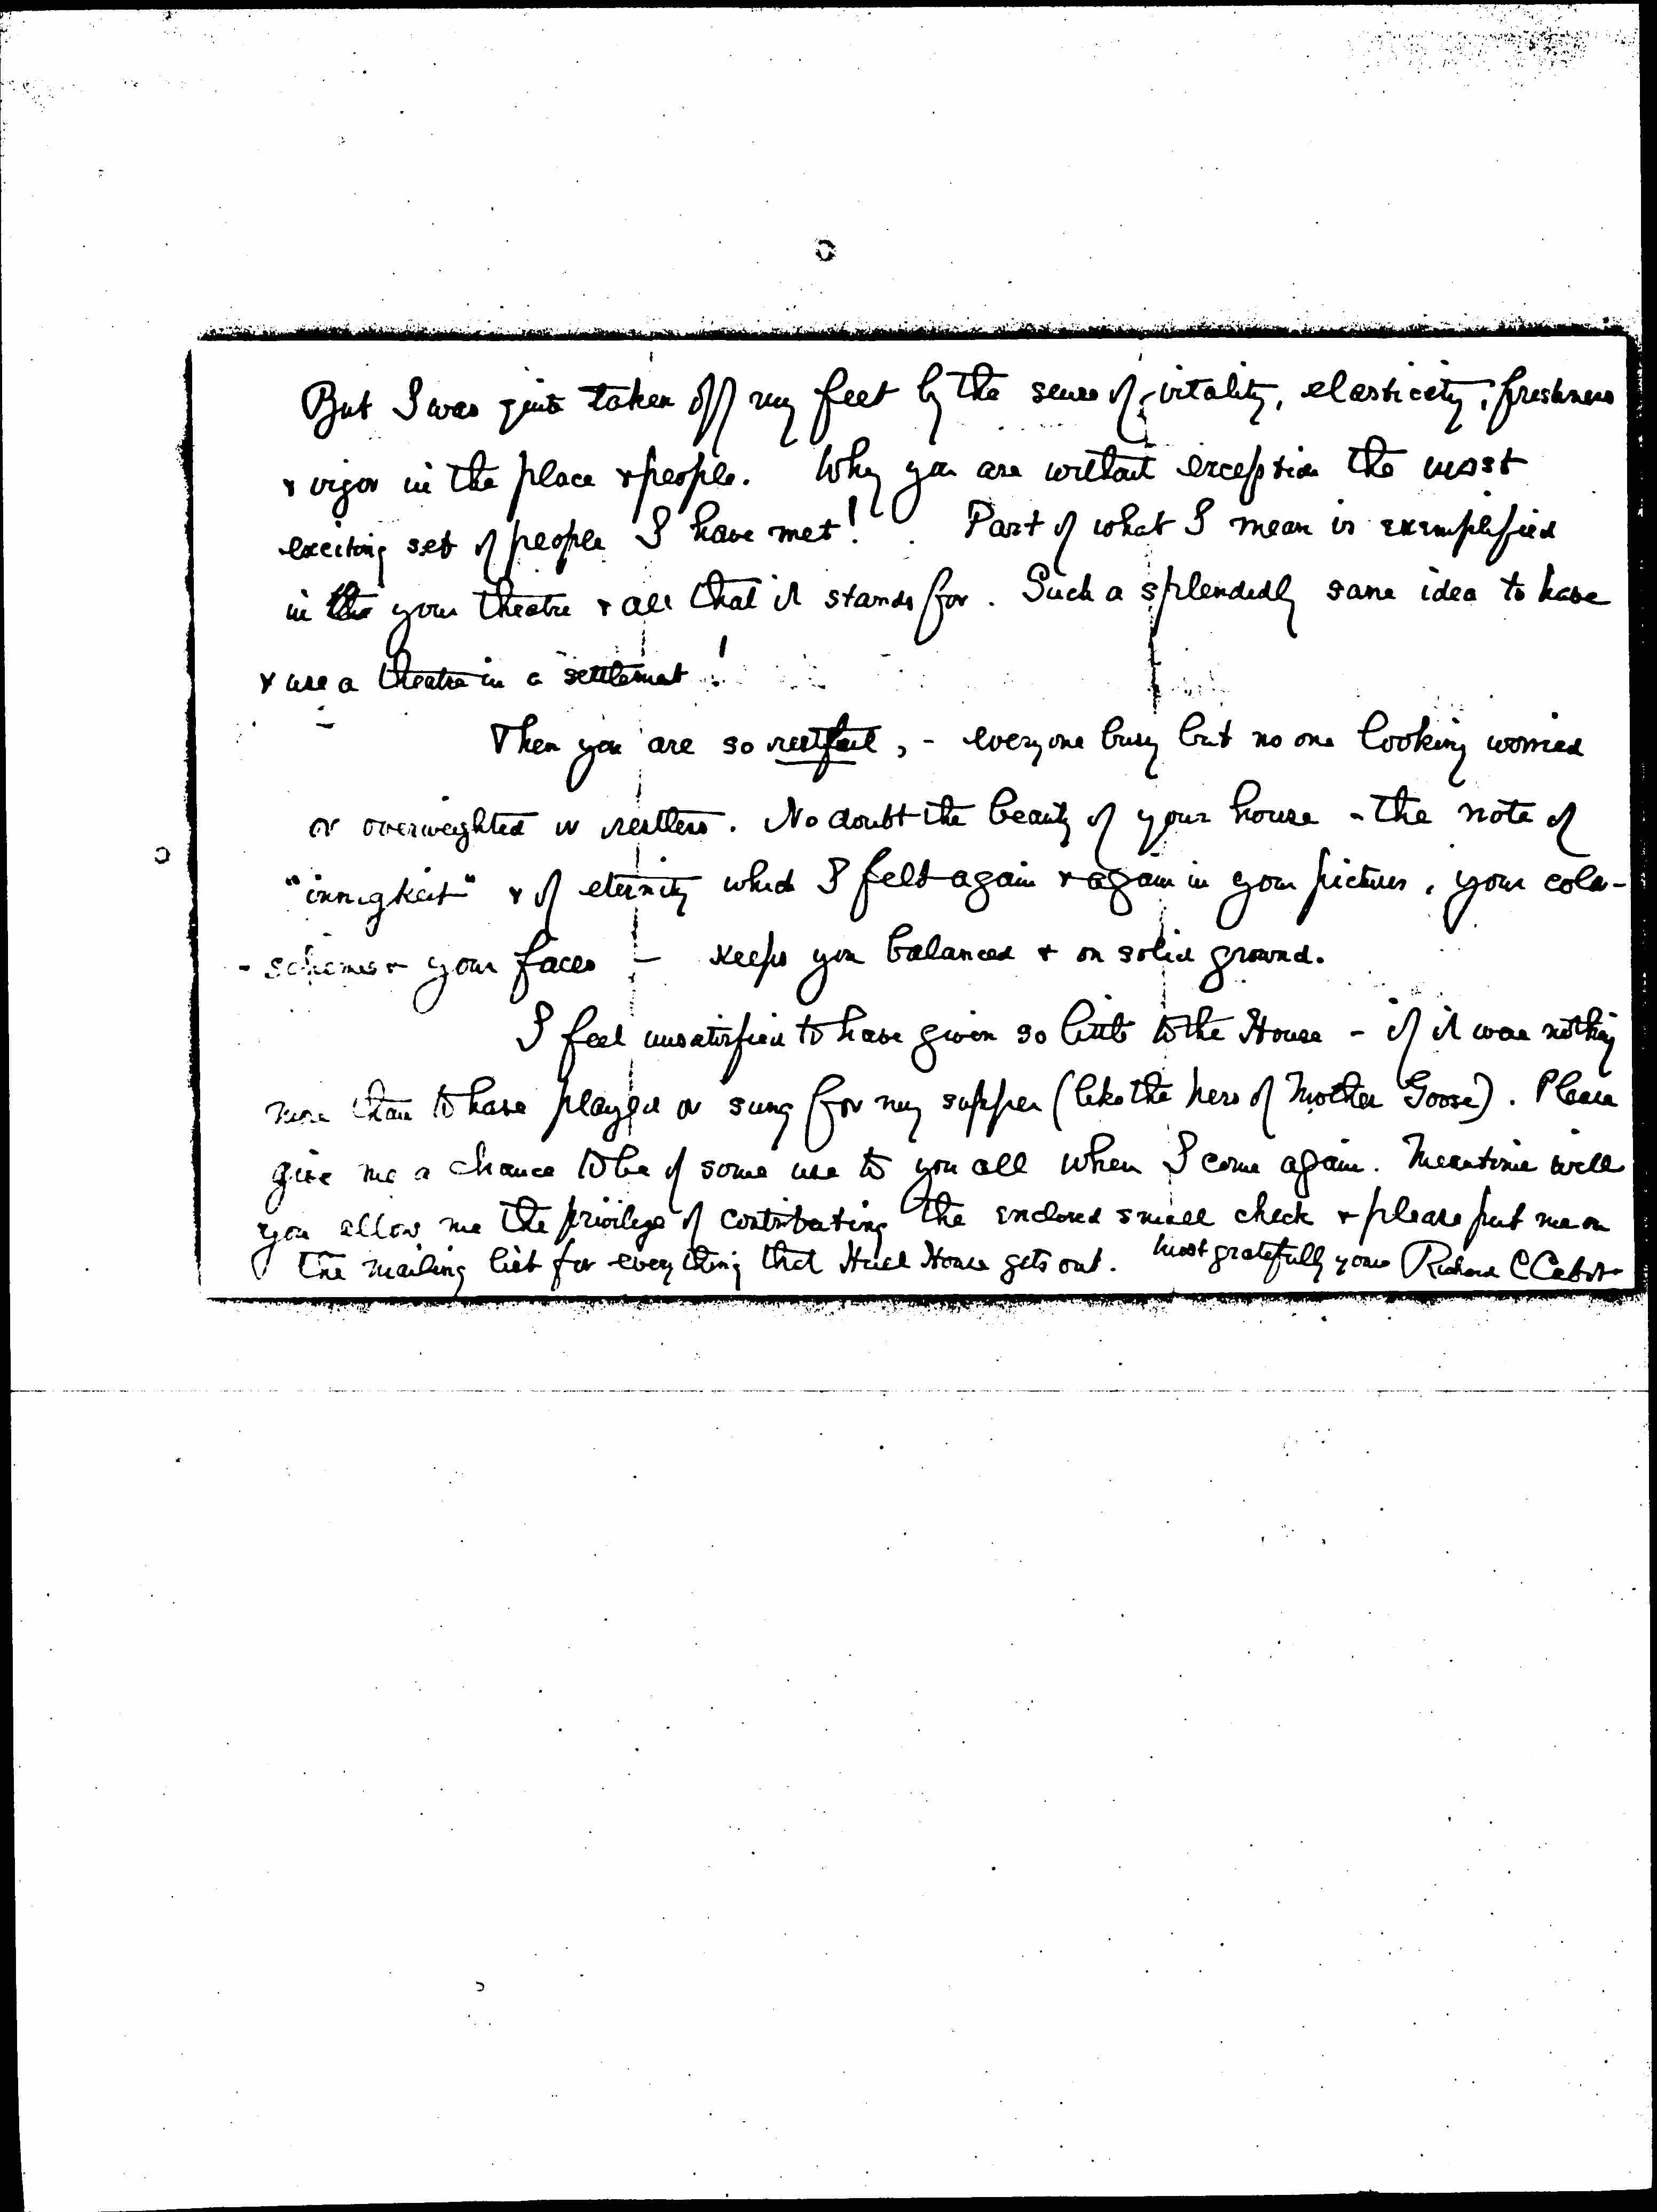 But I was quite taken off my feet by the sense of vitality, elasticity, freshness
& vigor in the place & people. Why you are without exception the most
exciting set of people I have met! Part of what I mean is exemplified
in the your theatre & all that it stands for. Such a splendidly sane idea to have
& use a theatre in a settlement!
Then you are so restful, - everyone busy but no one looking worried
or overweighted or restless. No doubt the beauty of your house - the note of
"innigkeit" & of eternity which I felt again & again in your pictures, your color-
- schemes & your faces - keeps you balanced & on solid ground.
I feel unsatisfied to have given so little to the House - if it was nothing
more than to have played or sung for my supper (like the hero of Mother Goose). Please
give me a chance to be of some use to you all when I come again. Meantime will
you allow me the privilege of contributing the enclosed small check & please put me on
the mailing list for everything that Hull House gets out. Most gratefully yours Richard C Cabot